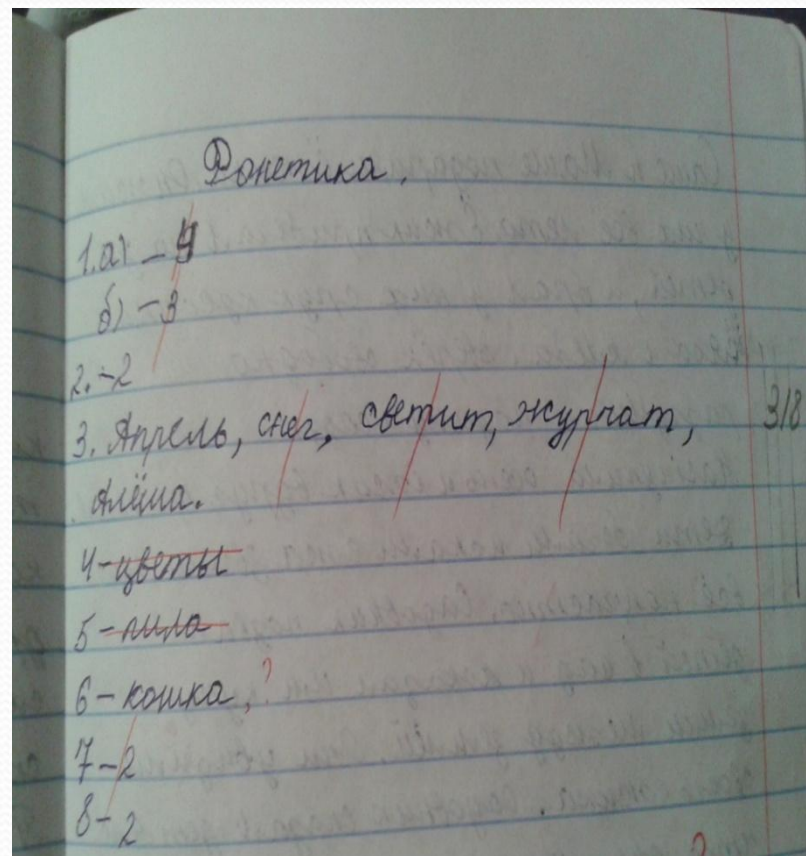 Фонетика.
1.а) – 4
б) – 3
2. – 2
3. Апрель, снег, светит, журчат, 3/8
Алёша.
4 – цветы
5 – пила
6 – кошка, ?
7 – 2
8 – 2
?